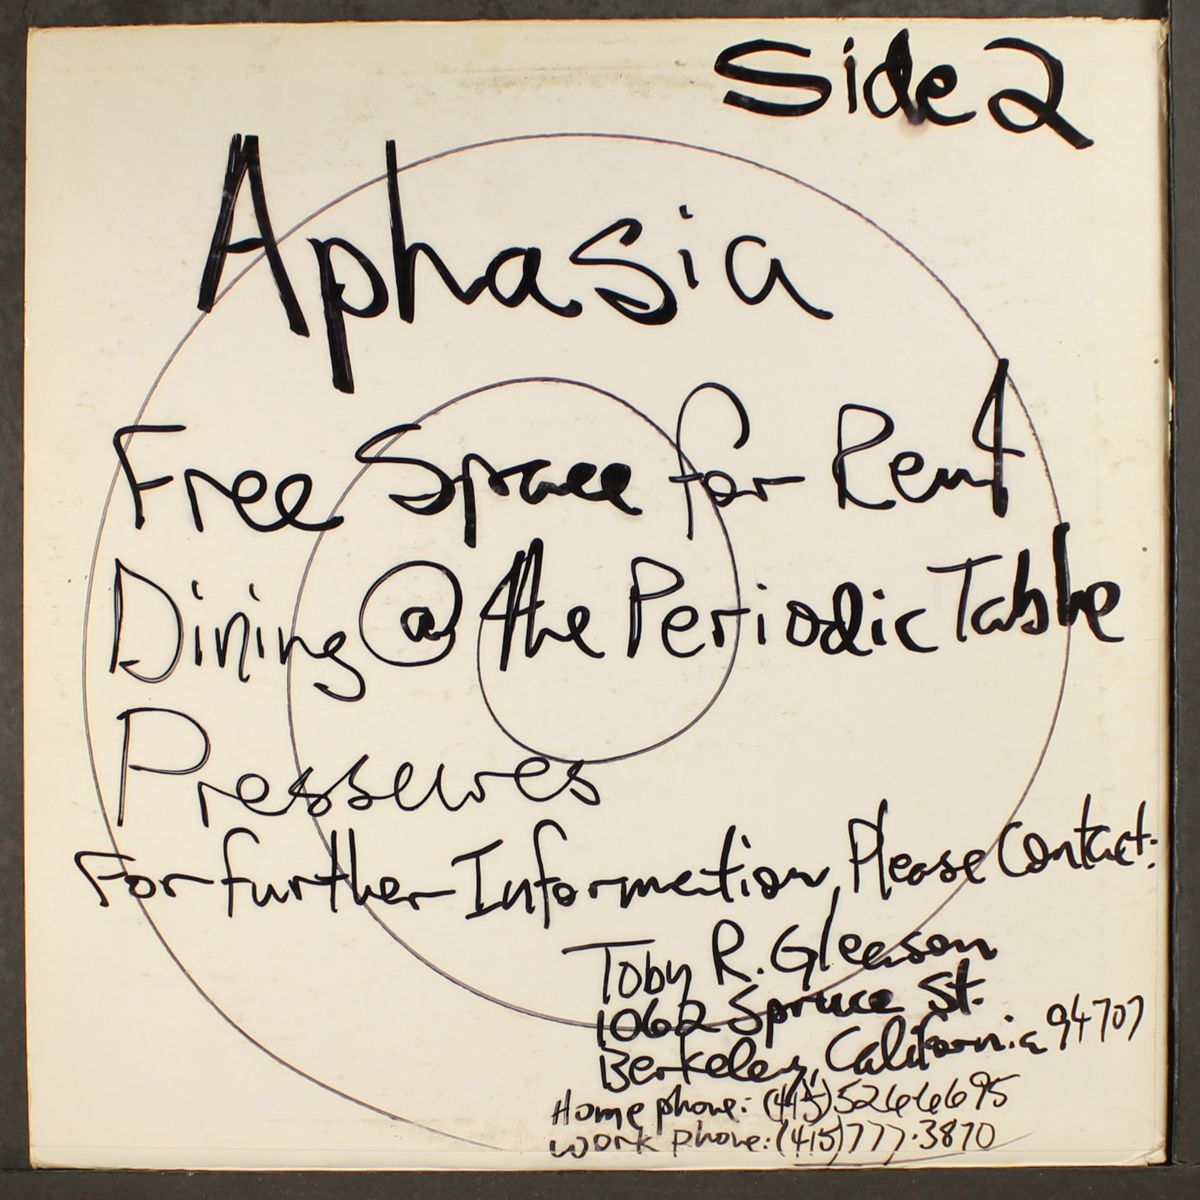 Side 2
Aphasia
Free Space for Rent
Dining @ the Periodic Table
Pressures
For further Information, Please Contact:
Toby R. Gleason
1062 Spruce St.
Berkeley, California 94707
Home phone: (415) 526 6695
work phone: (415) 777-3870